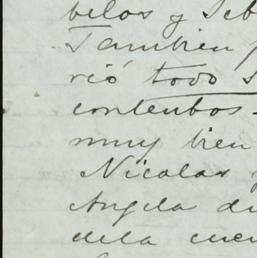 belos y Seb
Tambien p
rió todo s
contentos-
muy bien
Nicolas y
Angela di
dela cuen